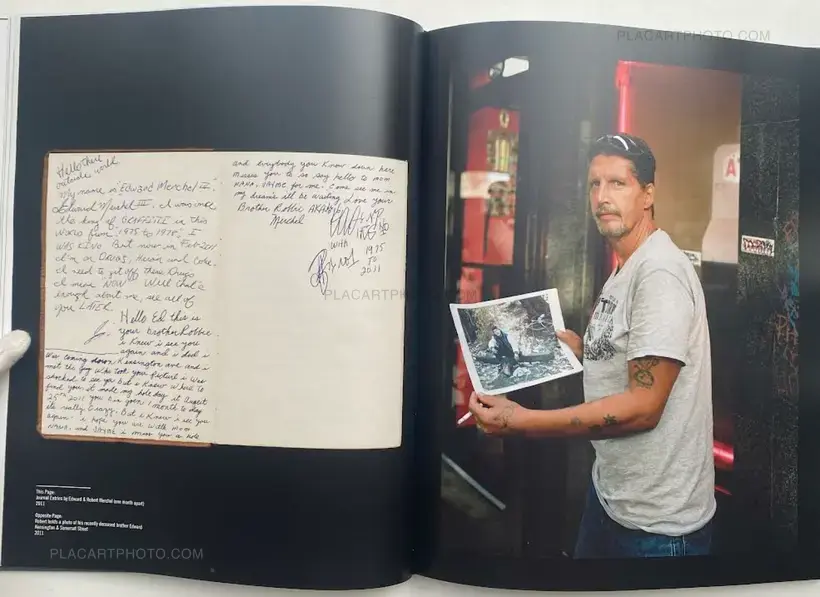 PLACARTPHOTO.COM
Hello there
outside world
My name is Edward Merchel III.
Edward Merchel III. I was
the king of GRAFFITIE in this
World from 1975 to 1978, I
WAS KING. But now in
I'm on Drugs, Heroin and Coke.
I need to get off these Drugs
I mean NOW. Well that's
enough about me, see all of
you LATER.
Hello Ed this is
your brother Robbie
i Knew i see you
again and i did i
Was coming down Kensington ave and i
met the guy who took your picture i was
shocked to see ya but i Knew where to
find you it made my hole day it August
25th 2011 you bin gone 1 month to day
its really crazy. But i Know i see you
again. i hope you are with mom
NANA, and i miss you a hole
and everybody you Know down here
misses you to so say hello to mom
NANA, for me. Come see me in
my dreams ill be waiting Love your
Brother Robbie AKA
Merchel
with
1975
to
2011
PLACARTPHOTO.COM
This Page:
Journal Entries by Edward & Robert Merchel (one month apart)
2011
Opposite Page:
Robert holds a photo of his recently deceased brother Edward
Kensington & Somerset Street
2011
PLACARTPHOTO.COM